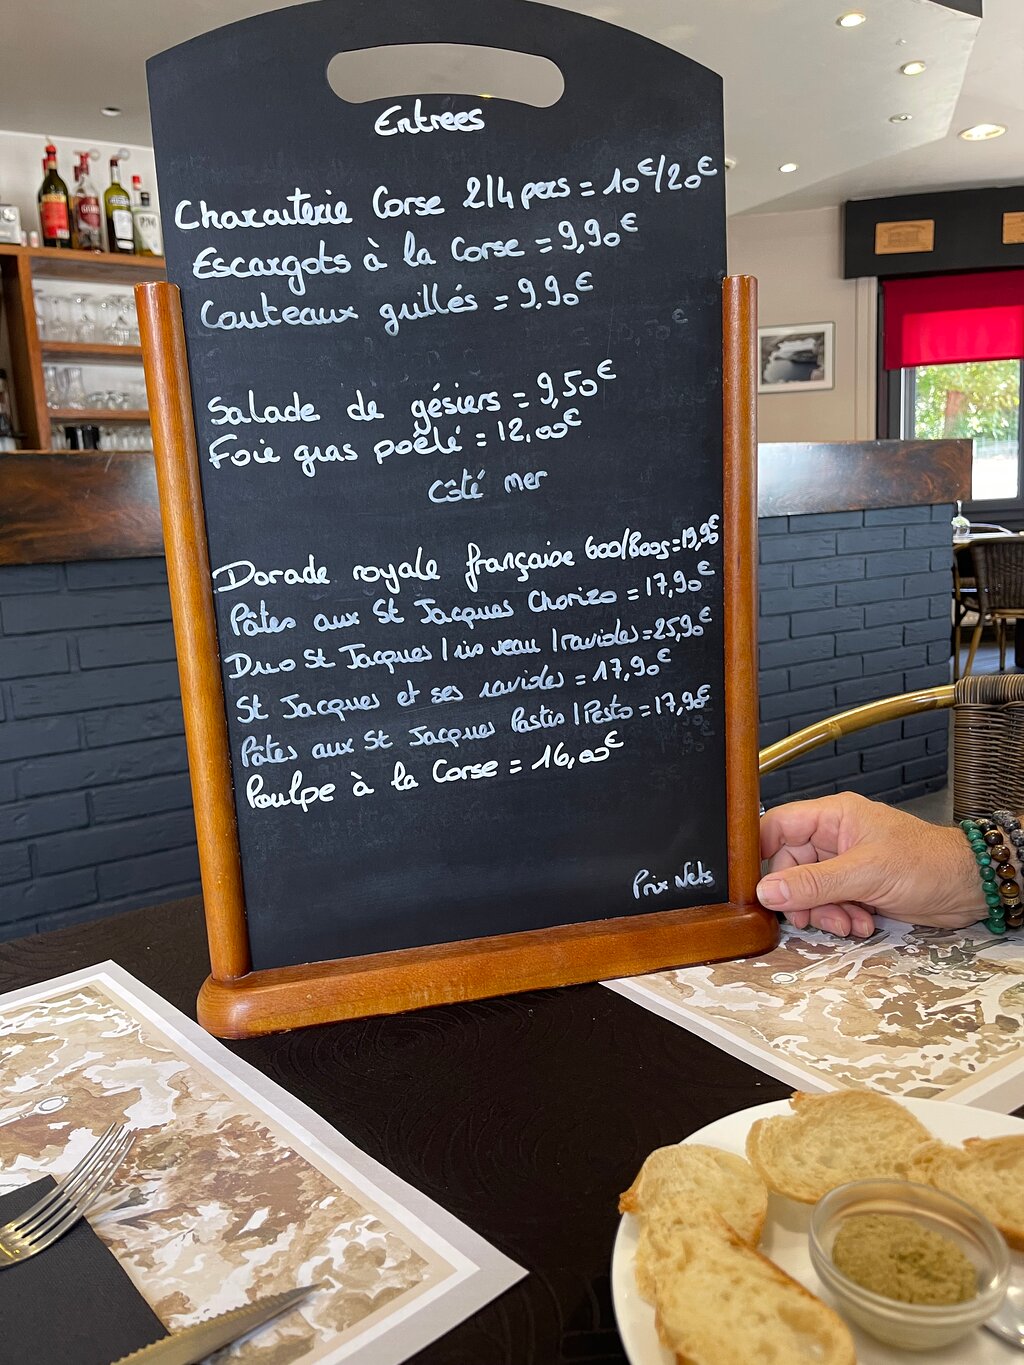 Entrees
Charcuterie Corse 2/4 pers = 10€/20€
Escargots à la Corse = 9,90€
Couteaux grillés = 9,90€
Salade de gésiers = 9,50€
Foie gras poêlé = 12,00€
Côté mer
Dorade royale française 600/800g = 19,90€
Pâtes aux St Jacques Chorizo = 17,90€
Duo St Jacques / ris veau / ravioles = 25,90€
St Jacques et ses ravioles = 17,90€
Pâtes aux St Jacques Pastis / Pesto = 17,90€
Poulpe à la Corse = 16,00€
Prix Nets